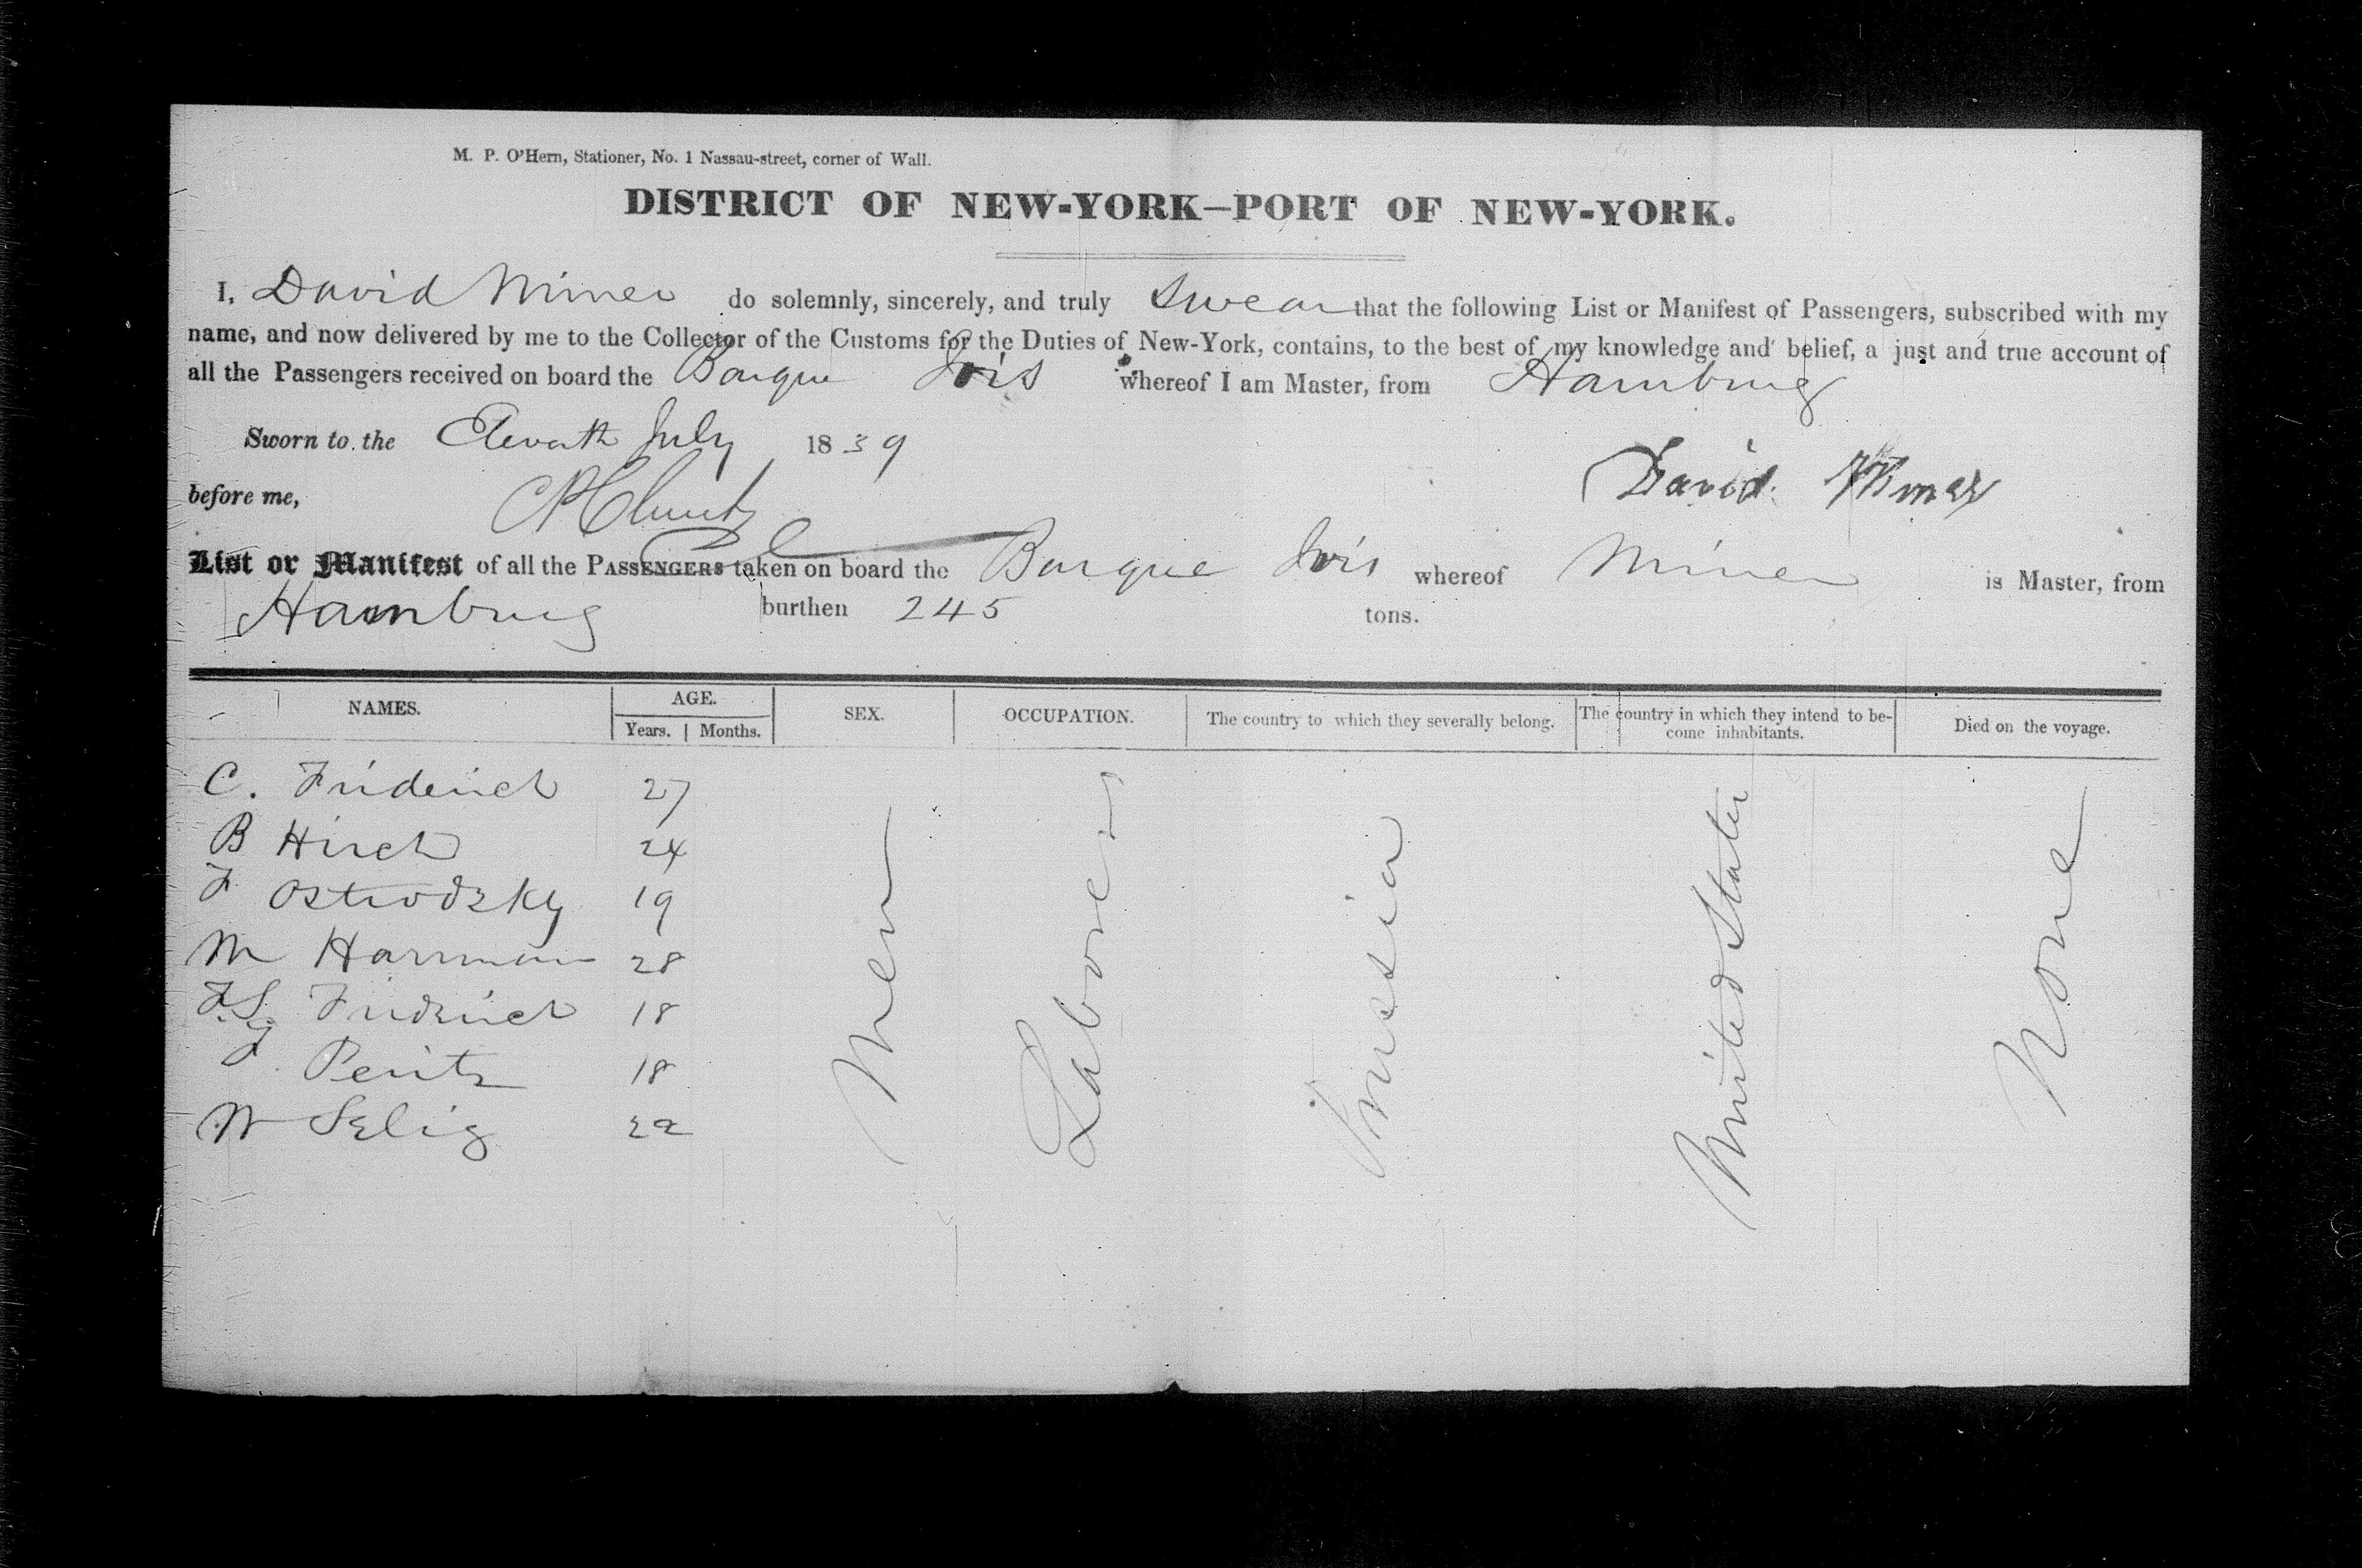 M. P. O'Hern, Stationer, No. 1 Nassau-street, corner of Wall.
DISTRICT OF NEW-YORK—PORT OF NEW-YORK.
I, David Miner do solemnly, sincerely, and truly Swear that the following List or Manifest of Passengers, subscribed with my
name, and now delivered by me to the Collector of the Customs for the Duties of New-York, contains, to the best of my knowledge and belief, a just and true account of
all the Passengers received on board the Barque Ivis whereof I am Master, from Hamburg
Sworn to the Elevnth July 1839
before me, David Miner
List or Manifest of all the PASSENGERS taken on board the Barque Ivis whereof Miner is Master, from
Hamburg burthen 245 tons.
NAMES. AGE. SEX. OCCUPATION. The country to which they severally belong. The country in which they intend to become inhabitants. Died on the voyage.
Years. Months.
C. Friderich 27
B Hirch 24
F Ostrodzky 19
M Harrman 28
F. S. Fridrich 18
Peritz 18
M Selig 22
Men Labourers Prussia United States None